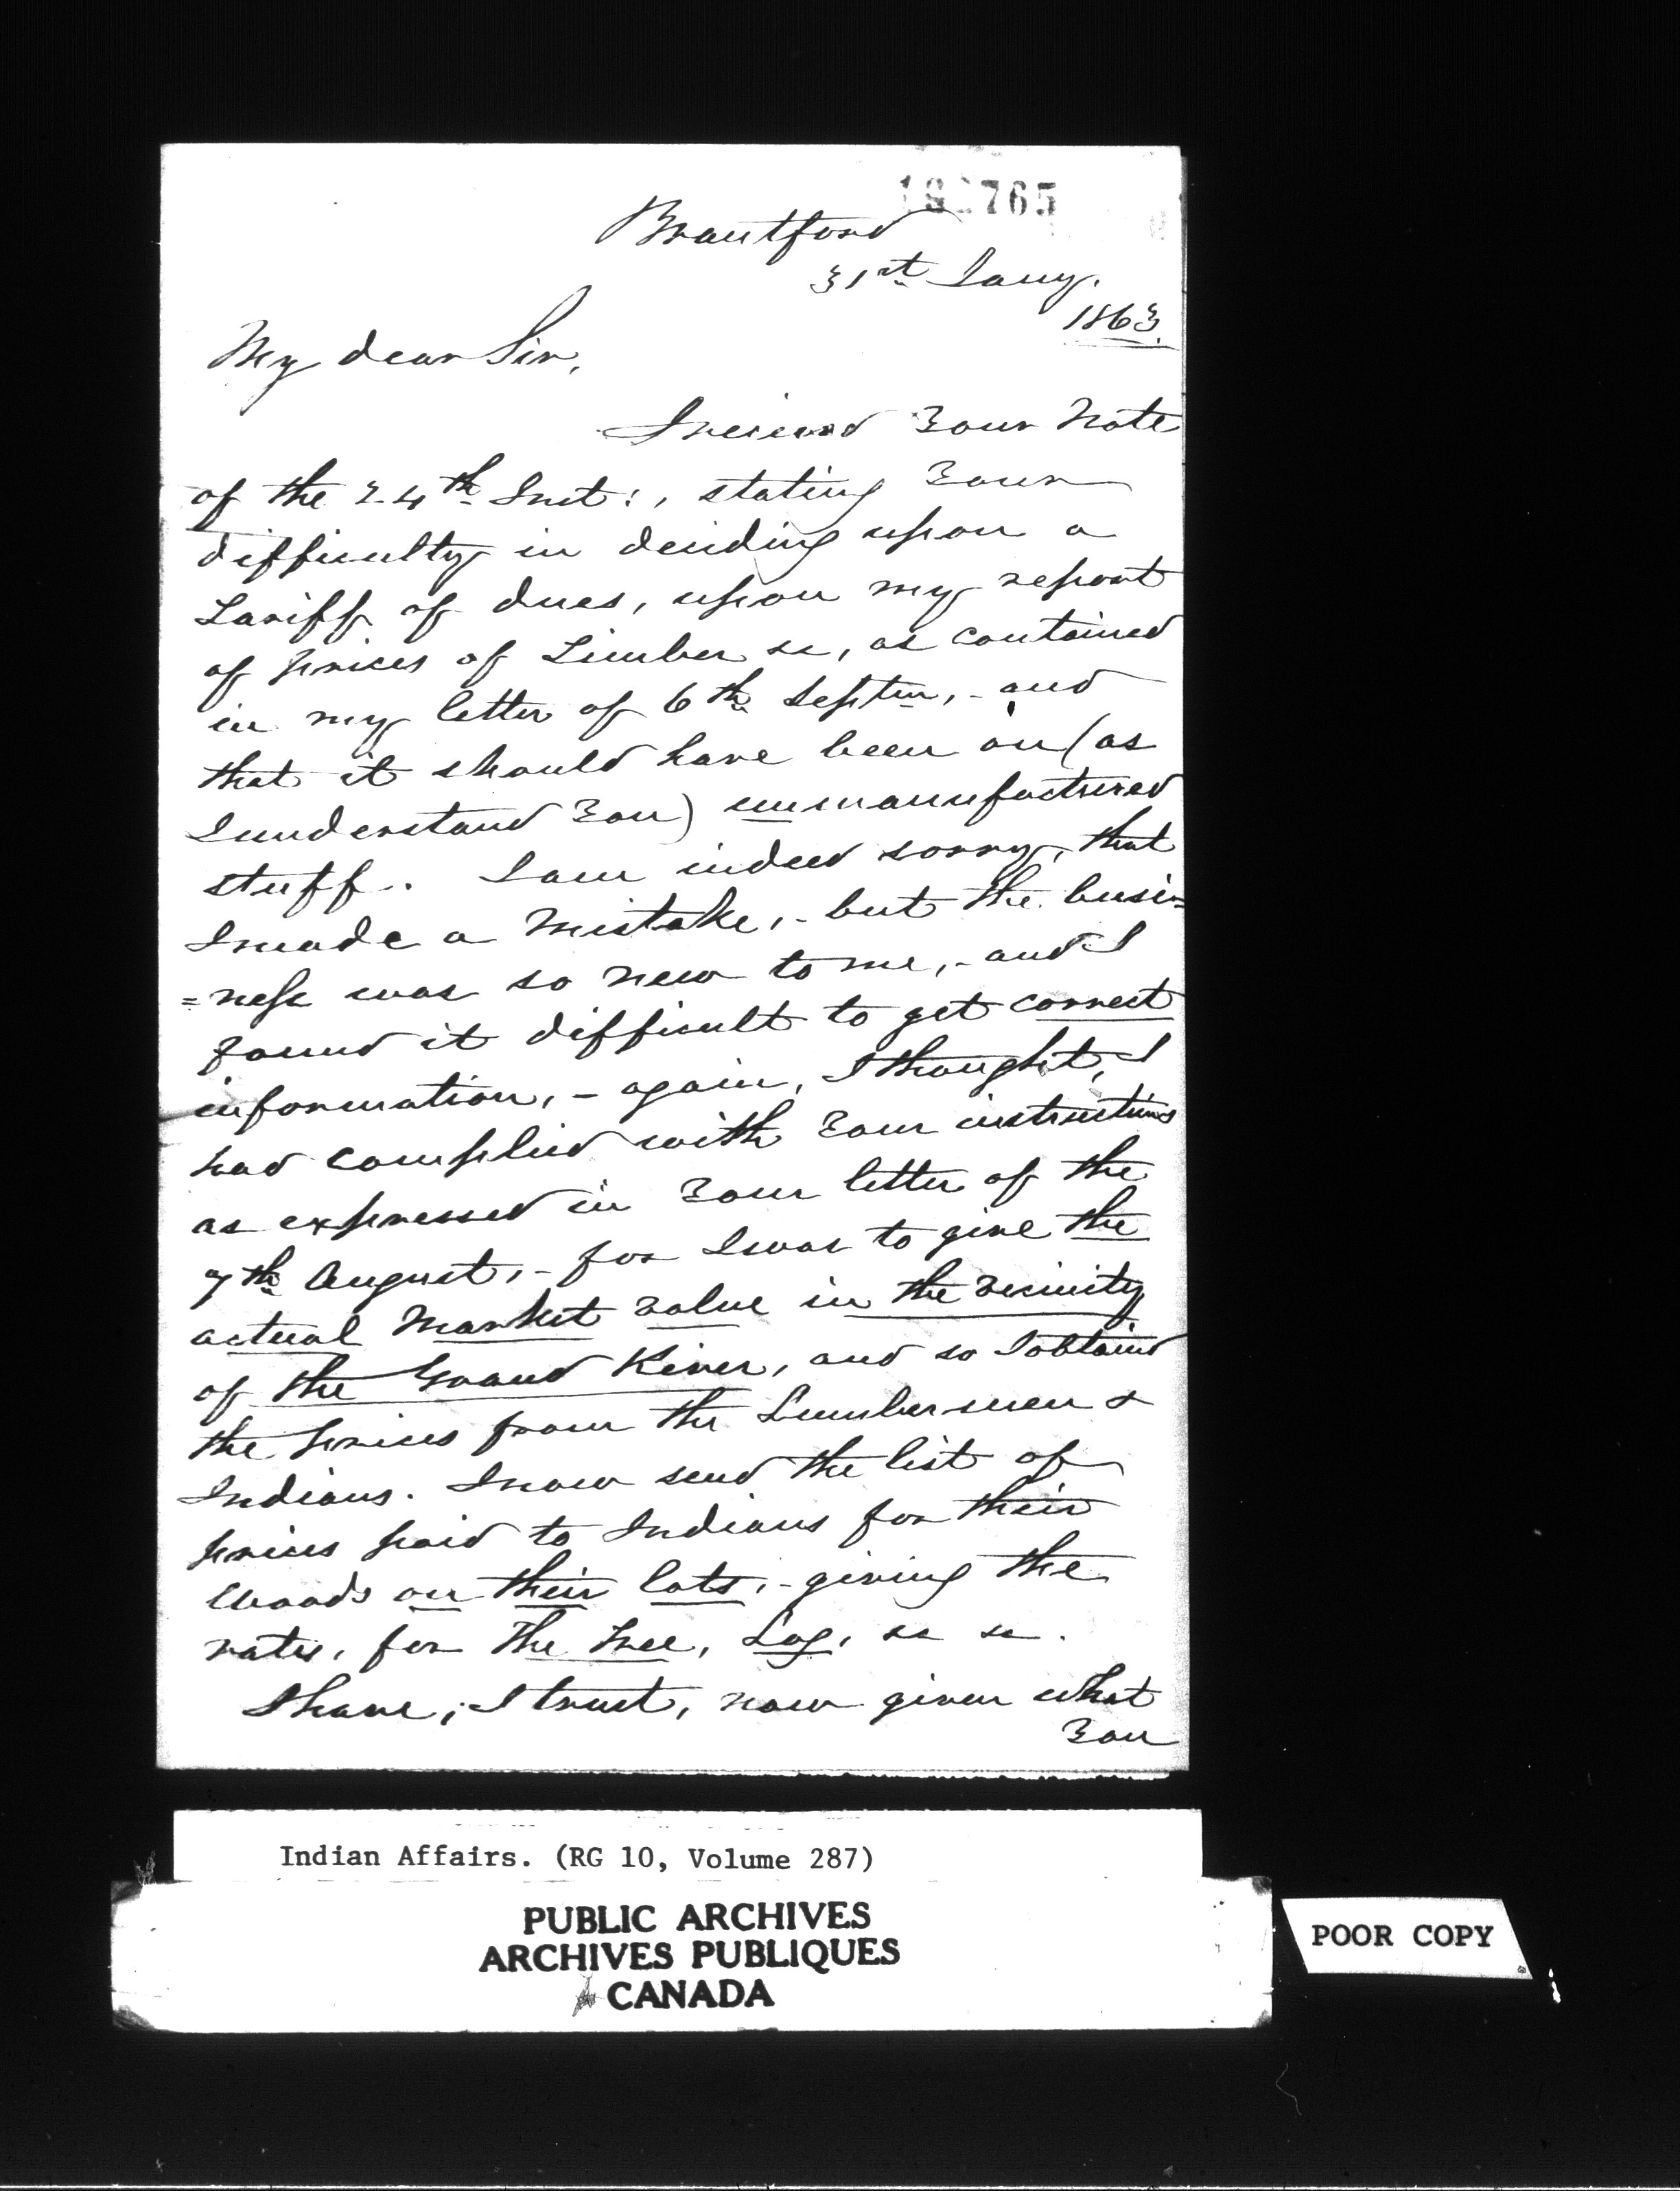 765
Brantford
31st Jany.
1863.
My dear Sir,
I received Your Note
of the 24th Inst:, stating Your
difficulty in deciding upon a
Tariff of dues, upon my report
of prices of Timber &c, as contained
in my letter of 6th Septer, - and
that it should have been on (as
I understand You) unmanufactured
stuff. I am indeed sorry, that
I made a Mistake, - but the busi=
=ness was so new to me, - and I
found it difficult to get correct
information, - again, I thought, I
had complied with Your instructions
as expressed in Your letter of the
7th August, - for I was to give the
actual Market Value in the Vicinity
of the Grand River, and so I obtained
the prices from the Lumbermen &
Indians. I now send the list of
prices paid to Indians for their
Woods on their lots, - giving the
rates, for the Tree, Log, &c &c.
I have, I trust, now given what
You
Indian Affairs. (RG 10, Volume 287)
PUBLIC ARCHIVES
ARCHIVES PUBLIQUES
CANADA
POOR COPY